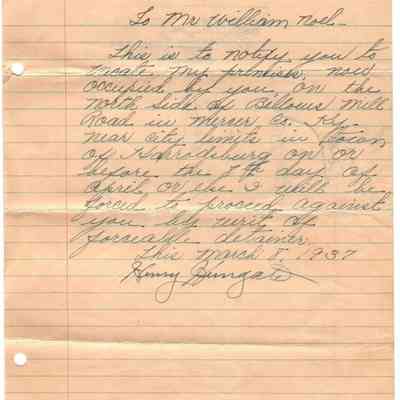 To Mr William Noel.
This is to notify you to
vicate my primises, now
occupied by you, on the
north side of Bellows Mill
Road in Mercer Co. Ky.
near city limits in
of Harrodsburg on or
before the 7th day of
April or else I will be
forced to proceed against
you by writ of
forceable detainer.
This March 8, 1937
Henry Dungate